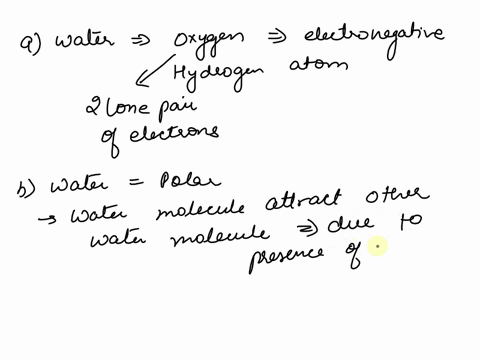 a) water ⇒ oxygen ⇒ electronegative
Hydrogen atom
2 lone pair
of electrons
b) water = Polar
→ water molecule attract other
water molecule ⇒ due to
presence of